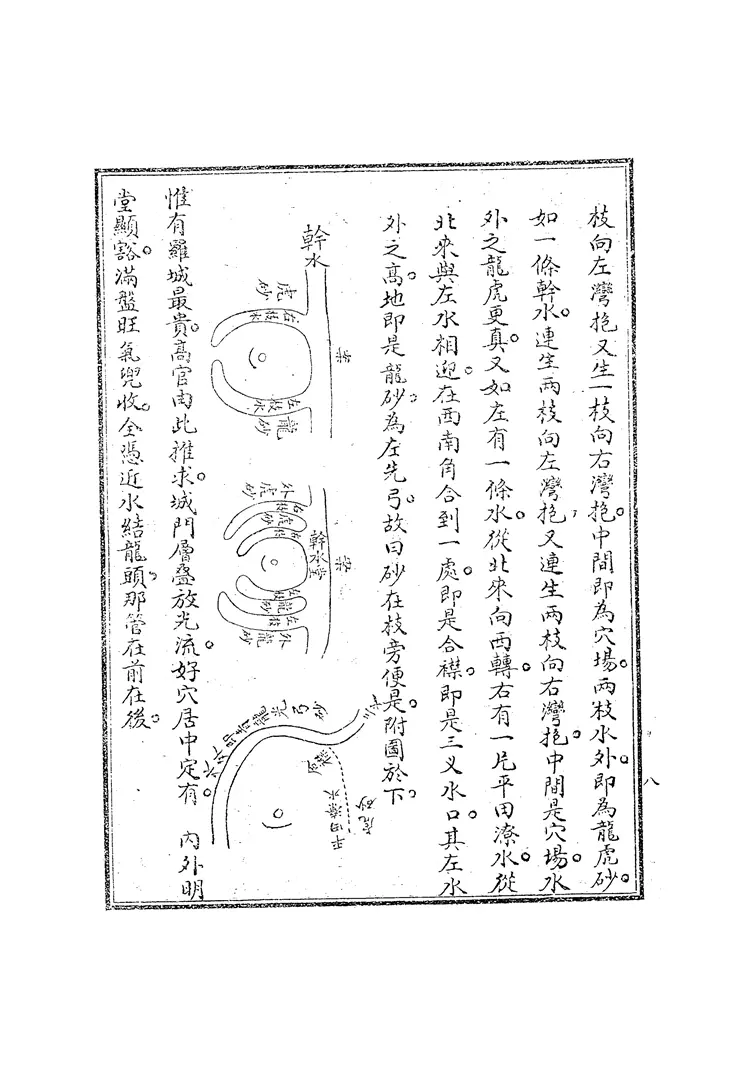 枝向左灣抱又生一枝向右灣抱。中間即為穴場。兩枝水外。即為龍虎砂。
如一條幹水。連生兩枝向左灣抱。又連生兩枝向右灣抱。中間是穴場。水
外之龍虎更真。又如左有一條水。從北來向西轉。右有一片平田潦水。從
北來與左水相迎。在西南角合到一處。即是合襟。即是三义水口。其左水
外之高。地即是龍砂。為左先弓。故曰砂在枝旁便是。附圖於下。
幹水
虎砂
右枝水
左枝水
龍砂
幹水
外虎砂
虎砂
龍砂
外龍砂
平田潦水
虎砂
惟有羅城最貴。高官由此推求。城門層叠放光流。好穴居中定有。 內外明
堂顯豁。滿盤旺氣兜收。全憑近水結龍頭。那管在前在後。
八